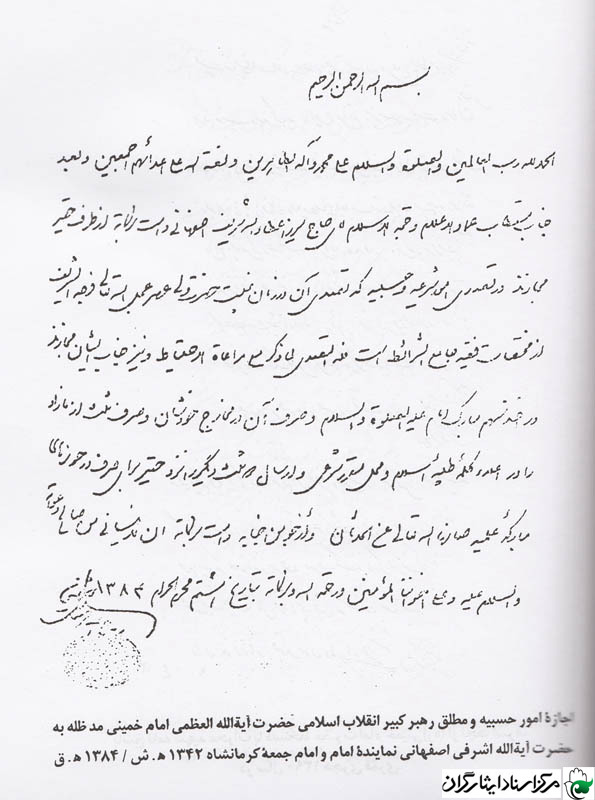 بسم الله الرحمن الرحیم
الحمدلله رب العالمین والصلوة والسلام علی محمد وآله الطاهرین ولعنة الله علی اعدائهم اجمعین وبعد
جناب مستطاب عماد الاعلام وثقة الاسلام آقای حاج میرزا عطاءالله اشرفی اصفهانی دامت برکاته از طرف حقیر
مجازند در تصدی امور شرعیه وحسبیه که تصدی آن در زمان غیبت حضرت ولی عصر عجل الله تعالی فرجه الشریف
از مختصات فقیه جامع الشرائط است فله التصدی لما ذکر مع مراعاة الاحتیاط ونیز جناب ایشان مجازند
در اخذ سهم مبارک امام علیه الصلوة والسلام وصرف آن در مخارج خودشان وصرف ثلث از مازاد
را در اعلاء کلمه طیبه اسلام ومحل مقرر شرعی وارسال دو ثلث دیگر را نزد حقیر برای صرف در حوزه‌های
مبارکه علمیه صانها الله تعالی عن الحدثان وارجو من جنابه دامت برکاته ان لاینسانی من صالح دعواته
والسلام علیه وعلی اخواننا المؤمنین ورحمة الله وبرکاته بتاریخ هشتم محرم الحرام ۱۳۸۴
اجازهٔ امور حسبیه و مطلق رهبر کبیر انقلاب اسلامی حضرت آیةالله العظمی امام خمینی مد ظله به
حضرت آیةالله اشرفی اصفهانی نمایندهٔ امام و امام جمعهٔ کرمانشاه ۱۳۴۲ ه‍. ش / ۱۳۸۴ ه‍. ق
مرکز اسناد ایثارگران